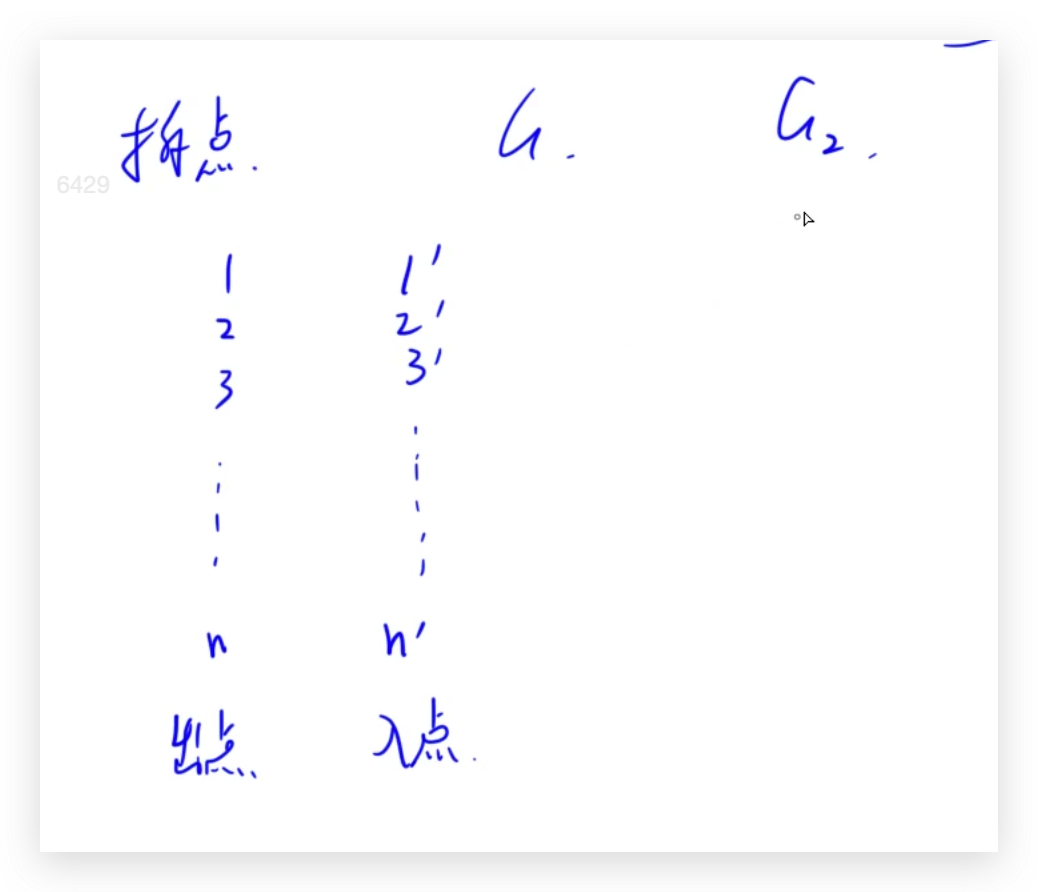 拆点. G. G2.
6429
1 1'
2 2'
3 3'
n n'
出点. 入点.